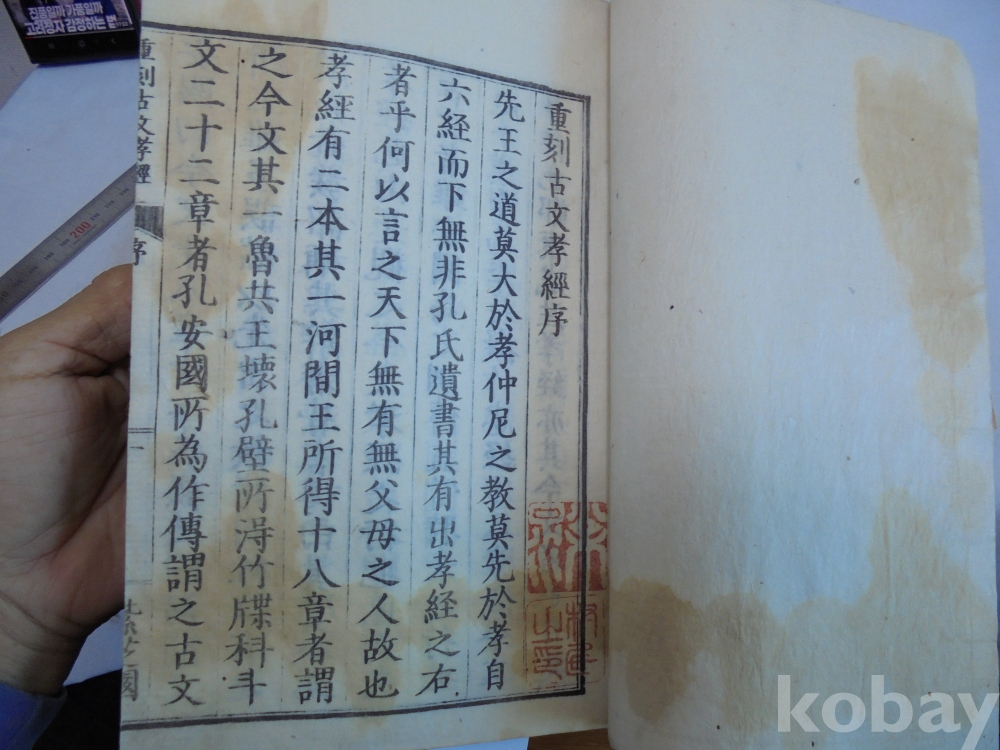 重刻古文孝經序
先王之道莫大於孝仲尼之教莫先於孝自
六経而下無非孔氏遺書其有出孝経之右
者乎何以言之天下無有無父母之人故也
孝經有二本其一河間王所得十八章者謂
之今文其一魯共王壞孔壁所得竹牒科斗
文二十二章者孔安國所為作傳謂之古文
重刻古文孝經
序
一
진품일까 가품일까
고려청자 감정하는 법
200
kobay